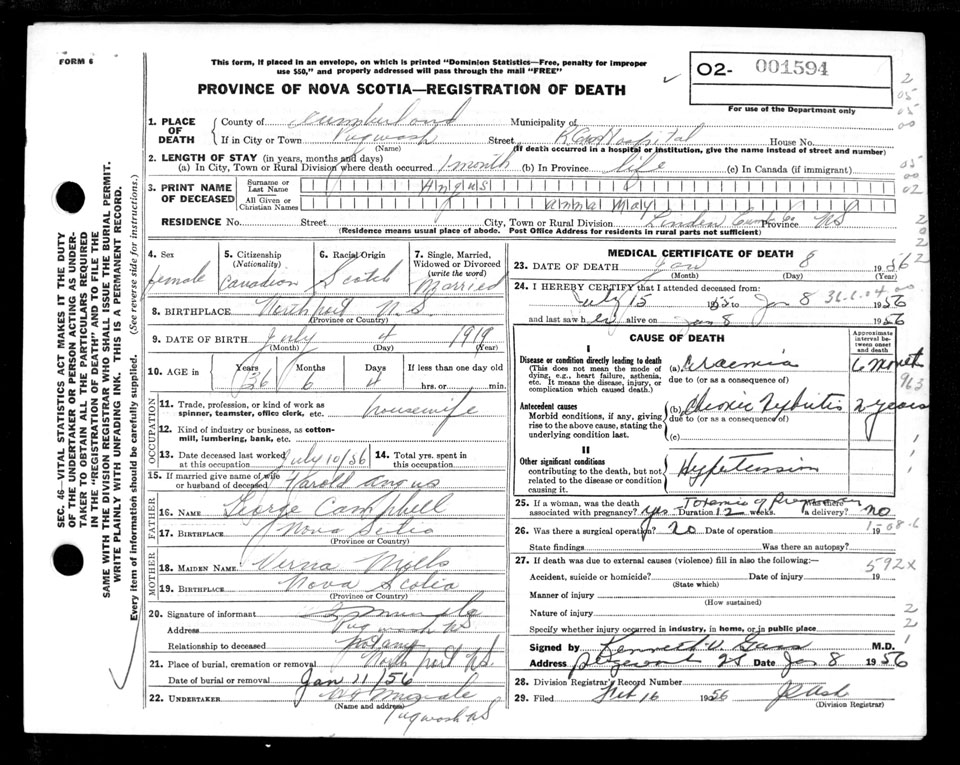 FORM 6
This form, if placed in an envelope, on which is printed "Dominion Statistics—Free, penalty for improper
use $50," and properly addressed will pass through the mail "FREE"
O2- 001594
For use of the Department only
PROVINCE OF NOVA SCOTIA—REGISTRATION OF DEATH
1. PLACE OF DEATH
County of Cumberland Municipality of
If in City or Town Pugwash Street Hospital House No.
(Name) (If death occurred in a hospital or institution, give the name instead of street and number)
2. LENGTH OF STAY (in years, months and days)
(a) In City, Town or Rural Division where death occurred 1 month (b) In Province life (c) In Canada (if immigrant)
3. PRINT NAME OF DECEASED
Surname or Last Name Angus
All Given or Christian Names Anna May
RESIDENCE No. Street City, Town or Rural Division Linden Cumb. Co. Province NS
(Residence means usual place of abode. Post Office Address for residents in rural parts not sufficient)
4. Sex female
5. Citizenship (Nationality) Canadian
6. Racial Origin Scotch
7. Single, Married, Widowed or Divorced (write the word) Married
8. BIRTHPLACE Northport N.S
(Province or Country)
9. DATE OF BIRTH July 4 1919
(Month) (Day) (Year)
10. AGE in Years 36 Months 6 Days 4 If less than one day old hrs. or min.
OCCUPATION
11. Trade, profession, or kind of work as spinner, teamster, office clerk, etc. housewife
12. Kind of industry or business, as cotton-mill, lumbering, bank, etc.
13. Date deceased last worked at this occupation July 10/56
14. Total yrs. spent in this occupation
15. If married give name of wife or husband of deceased Harold Angus
FATHER
16. NAME George Campbell
17. BIRTHPLACE Nova Scotia
(Province or Country)
MOTHER
18. MAIDEN NAME Verna Mills
19. BIRTHPLACE Nova Scotia
(Province or Country)
20. Signature of informant
Address Pugwash NS
Relationship to deceased
21. Place of burial, cremation or removal North port NS.
Date of burial or removal Jan 11/56
22. UNDERTAKER
(Name and address)
Pugwash NS
MEDICAL CERTIFICATE OF DEATH
23. DATE OF DEATH Jan 8 1956
(Month) (Day) (Year)
24. I HEREBY CERTIFY that I attended deceased from:
July 15 1955 to Jan 8 1956
and last saw her alive on Jan 8 1956
CAUSE OF DEATH
Approximate interval between onset and death
I
Disease or condition directly leading to death
(This does not mean the mode of dying, e.g., heart failure, asthenia, etc. It means the disease, injury, or complication which caused death.)
(a) Uraemia 6 month
due to (or as a consequence of)
Antecedent causes
Morbid conditions, if any, giving rise to the above cause, stating the underlying condition last.
(b) Chronic 2 years
due to (or as a consequence of)
(c)
II
Other significant conditions
contributing to the death, but not related to the disease or condition causing it.
Hypertension
25. If a woman, was the death associated with pregnancy? yes Duration 12 weeks. Was there a delivery? no
26. Was there a surgical operation? no Date of operation 19
State findings Was there an autopsy?
27. If death was due to external causes (violence) fill in also the following:
Accident, suicide or homicide? Date of injury 19
(State which)
Manner of injury
(How sustained)
Nature of injury
Specify whether injury occurred in industry, in home, or in public place
Signed by M.D.
Address Date Jan 8 1956
28. Division Registrar's Record Number
29. Filed Feb 16 1956
(Division Registrar)
592X
SEC. 46 - VITAL STATISTICS ACT MAKES IT THE DUTY
OF THE UNDERTAKER OR PERSON ACTING AS UNDER-
TAKER TO OBTAIN ALL THE PARTICULARS REQUIRED
IN THE "REGISTRATION OF DEATH" AND TO FILE THE
SAME WITH THE DIVISION REGISTRAR WHO SHALL ISSUE THE BURIAL PERMIT.
WRITE PLAINLY WITH UNFADING INK. THIS IS A PERMANENT RECORD.
Every item of information should be carefully supplied. (See reverse side for instructions.)